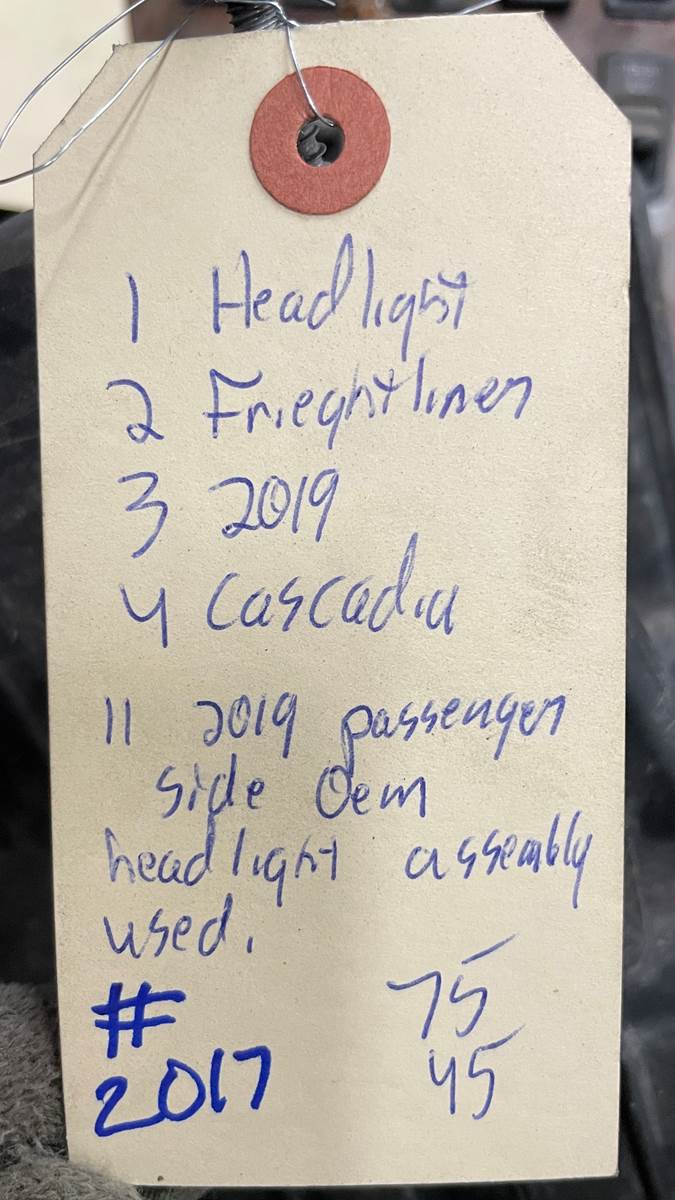 1 Headlight
2 Frieghtliner
3 2019
4 Cascadia
11 2019 passenger
side Oem
headlight assembly
used.
# 75
2017 45